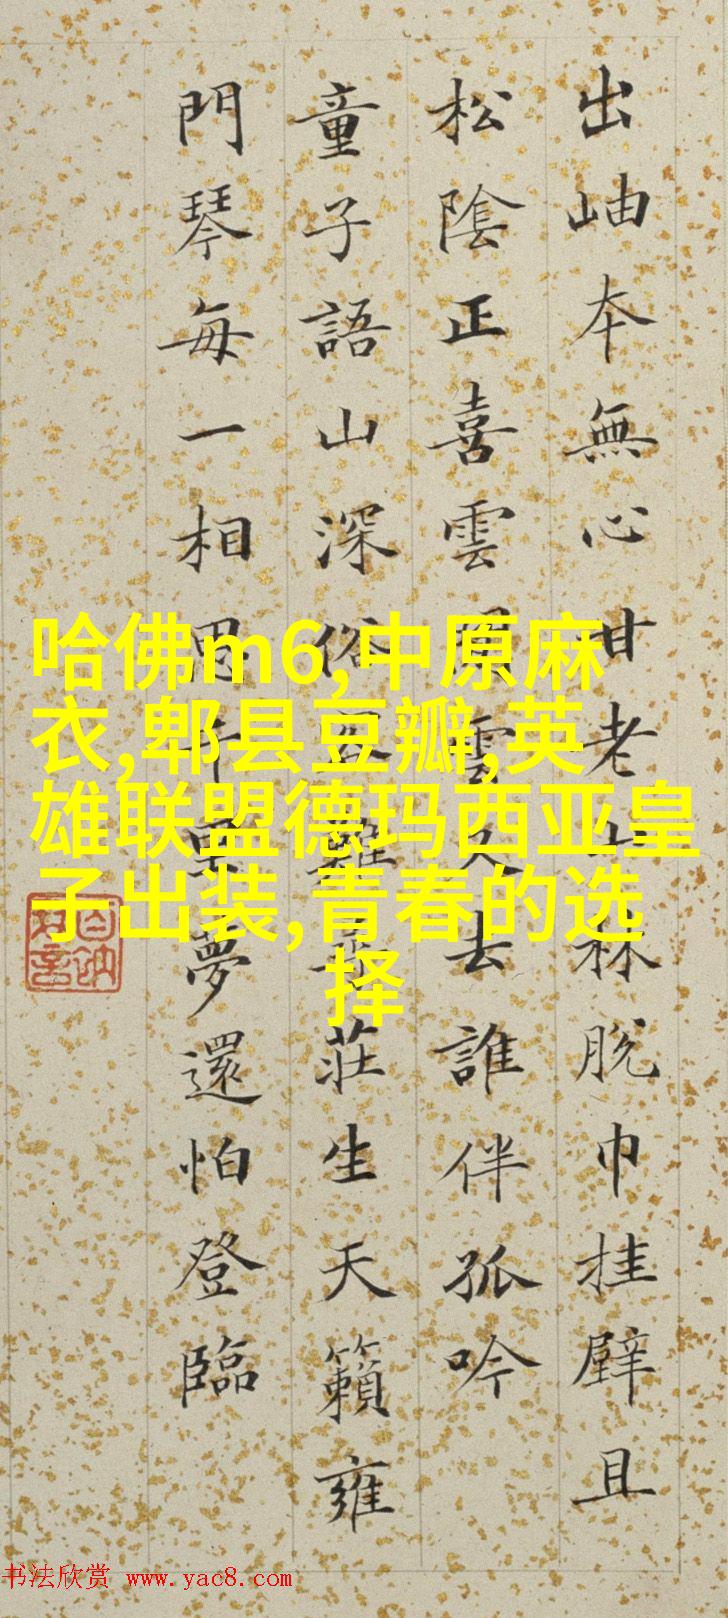 出岫本無心甘老山林脫巾挂壁且
松陰正喜雲頭雲久去誰伴孤吟
童子語山深俗客難尋莊生天籟雍
門琴每一相思千里夢還怕登臨
哈佛m6,中原麻
衣,郫县豆瓣,英
雄联盟德玛西亚皇
子出装,青春的选
择
书法欣赏 www.yac8.com